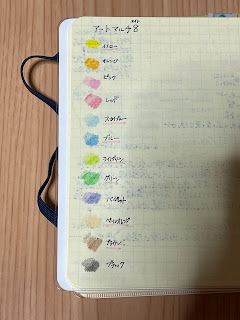 アートマルチ8
イエロー
オレンジ
ピンク
レッド
スカイブルー
ブルー
ライトグリーン
グリーン
バイオレット
ペールオレンジ
ブラウン
ブラック